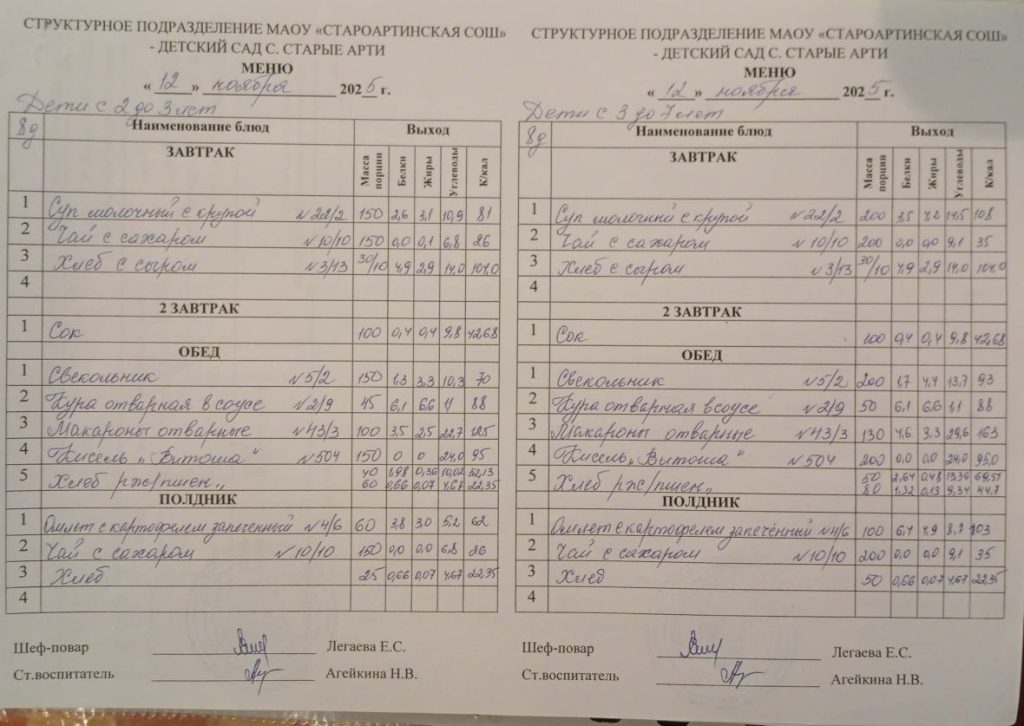 СТРУКТУРНОЕ ПОДРАЗДЕЛЕНИЕ МАОУ «СТАРОАРТИНСКАЯ СОШ»
- ДЕТСКИЙ САД С. СТАРЫЕ АРТИ
МЕНЮ
« 12 » ноября 2025 г.
Дети с 2 до 3 лет
8д Наименование блюд Выход
ЗАВТРАК Масса порции Белки Жиры Углеводы К/кал
1 Суп молочный с крупой №22/2 150 2,6 3,1 10,9 81
2 Чай с сахаром №10/10 150 0,0 0,1 6,8 26
3 Хлеб с сыром №3/13 30/10 4,9 2,9 14,0 104,0
4
2 ЗАВТРАК
1 Сок 100 0,4 0,4 9,8 42,68
ОБЕД
1 Свекольник №5/2 150 1,3 3,3 10,3 70
2 Кура отварная в соусе №2/9 45 6,1 6,6 11 88
3 Макароны отварные №43/3 100 3,5 2,5 22,7 125
4 Кисель „Витоша" №504 150 0 0 24,0 95
5 Хлеб рж/пшен„ 40 1,98 0,36 10,02 52,13
60 0,66 0,07 4,67 22,35
ПОЛДНИК
1 Омлет с картофелем запеченный №4/6 60 3,8 3,0 5,2 62
2 Чай с сахаром №10/10 150 0,0 0,0 6,8 26
3 Хлеб 25 0,66 0,07 4,67 22,35
4
Шеф-повар Легаева Е.С.
Ст.воспитатель Агейкина Н.В.
СТРУКТУРНОЕ ПОДРАЗДЕЛЕНИЕ МАОУ «СТАРОАРТИНСКАЯ СОШ»
- ДЕТСКИЙ САД С. СТАРЫЕ АРТИ
МЕНЮ
« 12 » ноября 2025 г.
Дети с 3 до 7 лет
8д Наименование блюд Выход
ЗАВТРАК Масса порции Белки Жиры Углеводы К/кал
1 Суп молочный с крупой №22/2 200 3,5 4,2 14,5 108
2 Чай с сахаром №10/10 200 0,0 0,0 9,1 35
3 Хлеб с сыром №3/13 30/10 4,9 2,9 14,0 104,0
4
2 ЗАВТРАК
1 Сок 100 0,4 0,4 9,8 42,68
ОБЕД
1 Свекольник №5/2 200 1,7 4,4 13,7 93
2 Кура отварная в соусе №2/9 50 6,1 6,6 1,1 88
3 Макароны отварные №43/3 130 4,6 3,3 29,6 163
4 Кисель „Витоша" №504 200 0,0 0,0 24,0 95,0
5 Хлеб рж/пшен„ 50 2,64 0,48 13,36 69,51
80 1,32 0,13 9,34 44,7
ПОЛДНИК
1 Омлет с картофелем запечённый №4/6 100 6,4 4,9 8,7 103
2 Чай с сахаром №10/10 200 0,0 0,0 9,1 35
3 Хлеб 50 0,66 0,07 4,67 22,35
4
Шеф-повар Легаева Е.С.
Ст.воспитатель Агейкина Н.В.